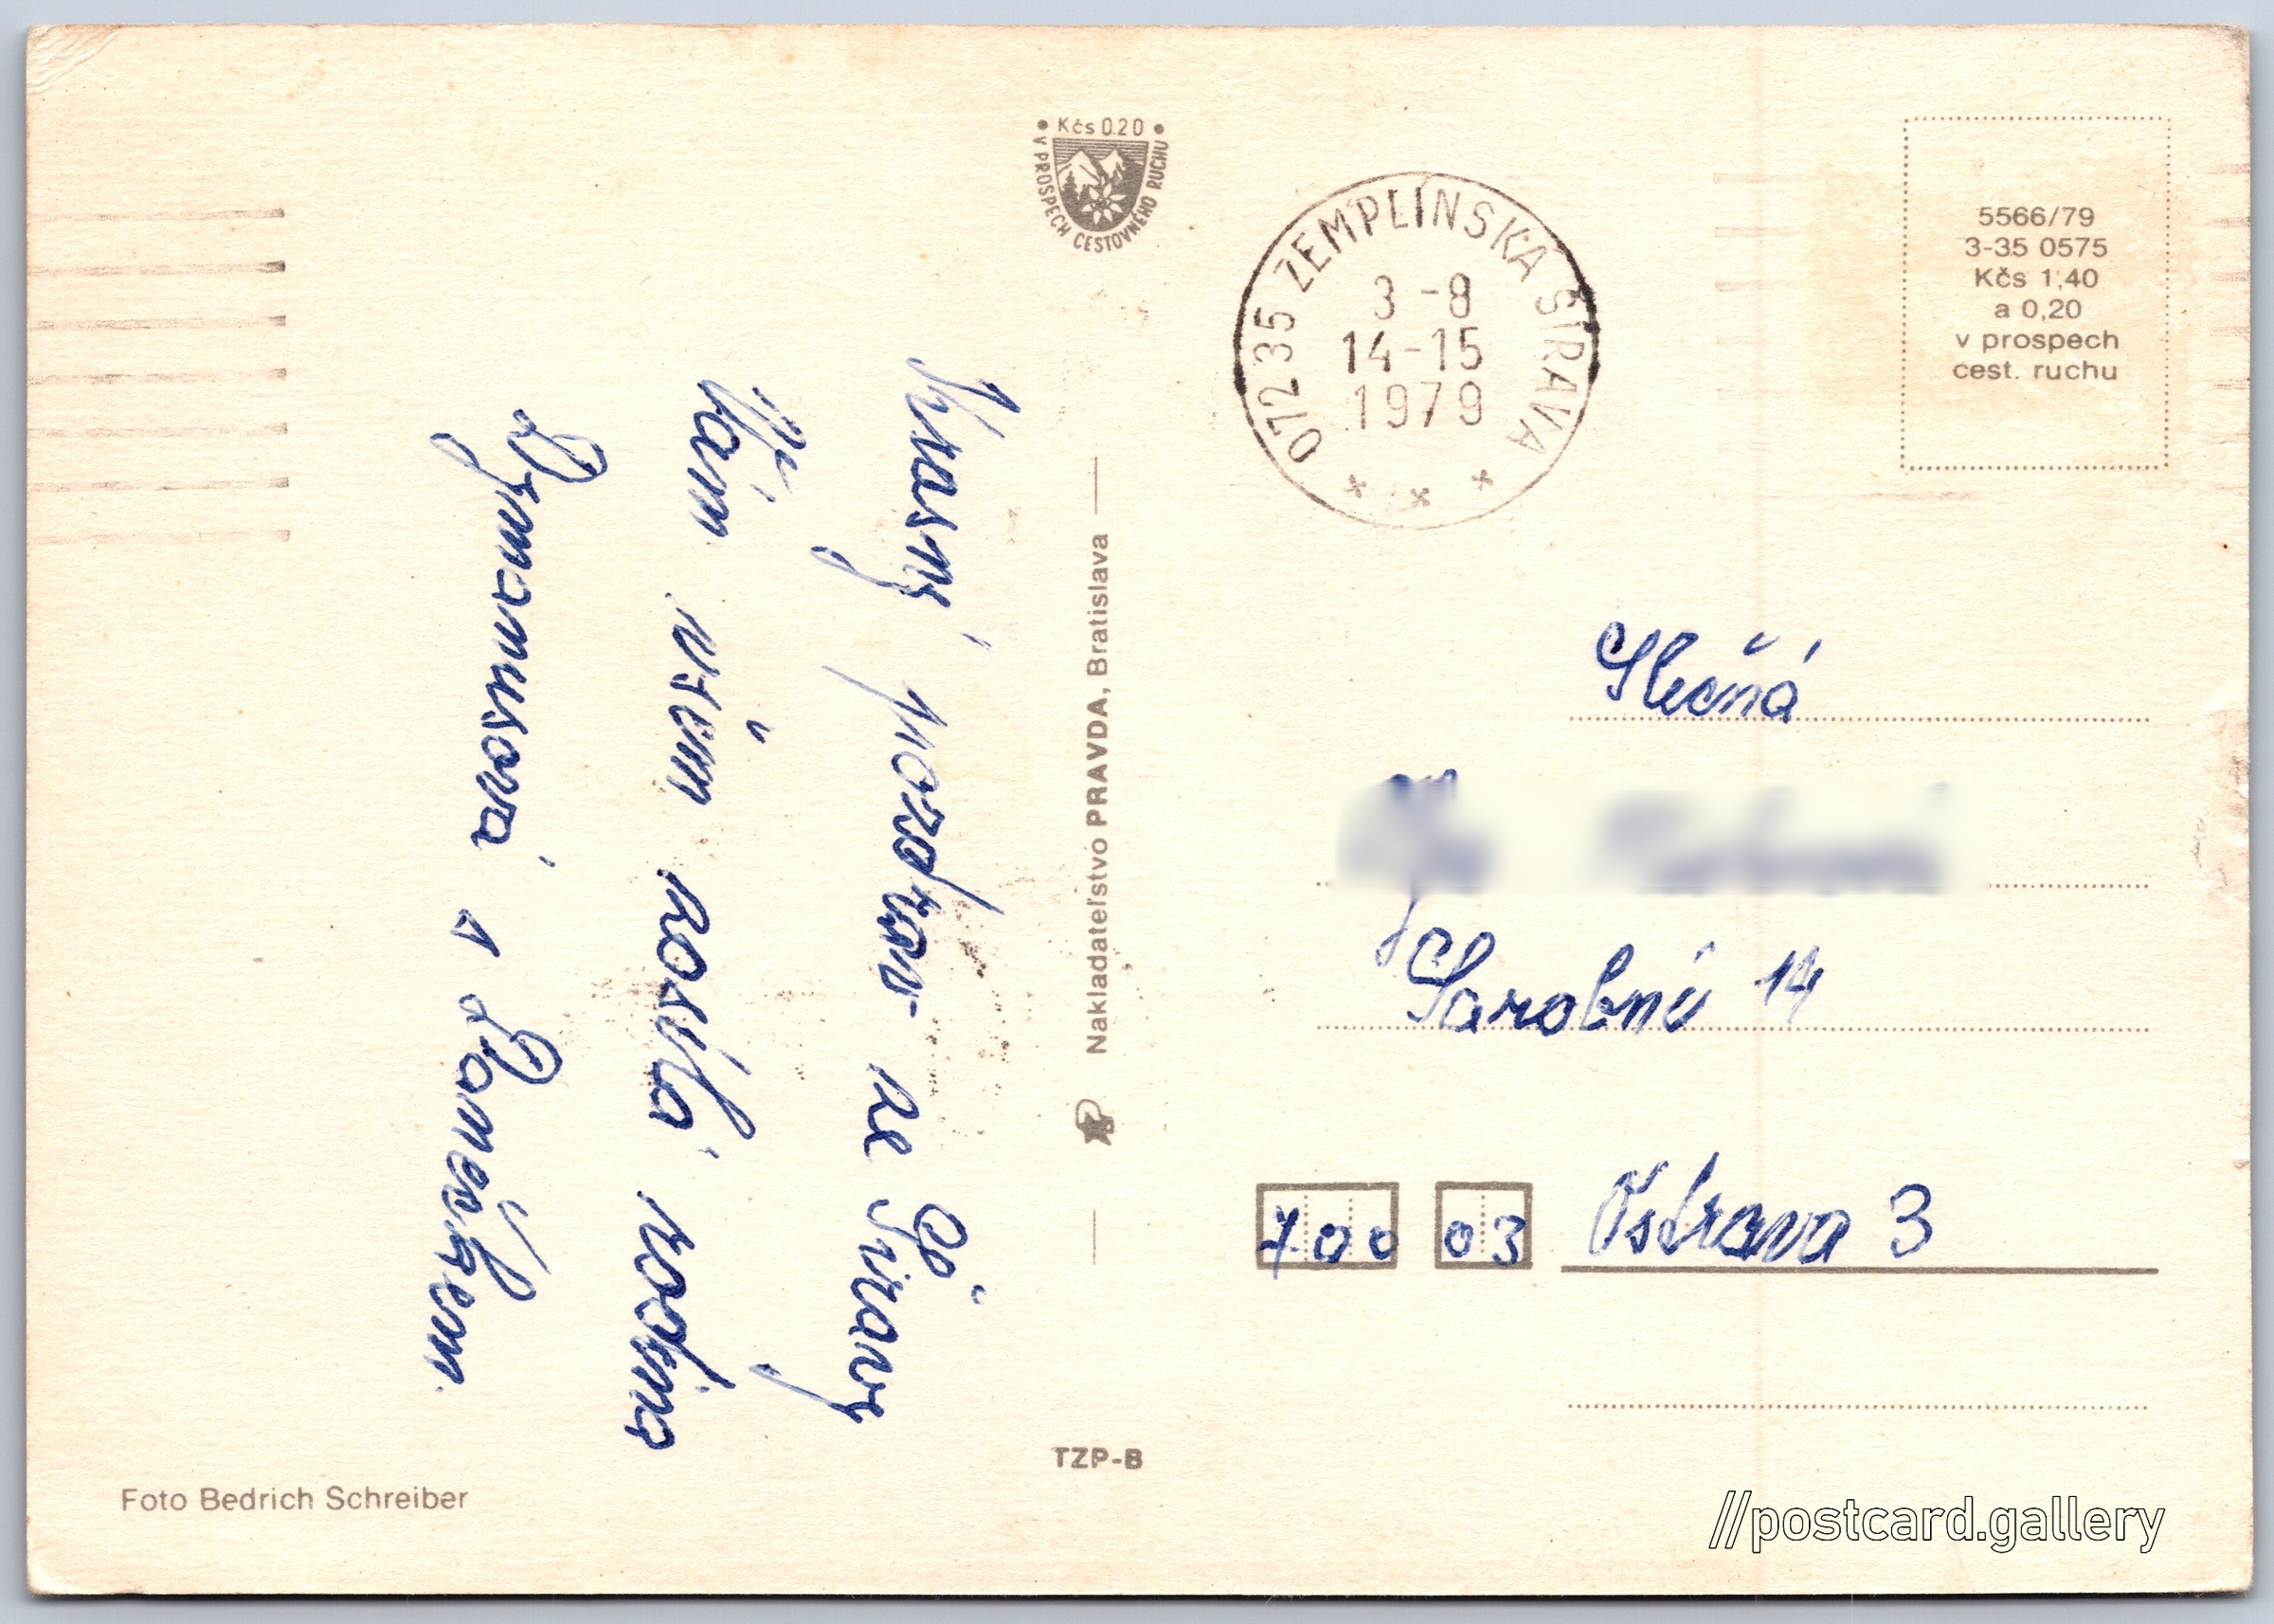 Krasný pozdrav ze Šíravy
Vám všem posílá rodina
Zymanusová s Daneškem.
Foto Bedrich Schreiber
• Kčs 0.20 •
V PROSPECH CESTOVNÉHO RUCHU
Nakladateľstvo PRAVDA, Bratislava
TZP-B
072 35 ZEMPLÍNSKA ŠÍRAVA
3 -8
14-15
1979
5566/79
3-35 0575
Kčs 1,40
a 0,20
v prospech
cest. ruchu
Slečná
14
700 03 Ostrava 3
//postcard.gallery